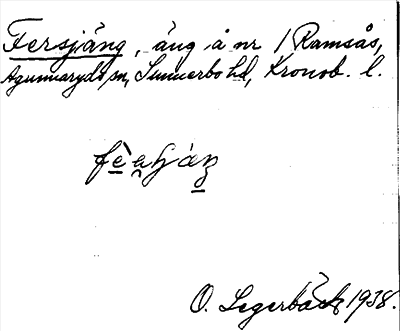 Fersjäng, äng å nr 1 Ramsås,
Agunnaryds sn, Sunnerbo hd, Kronob. l.
O. Legerbäck 1938.